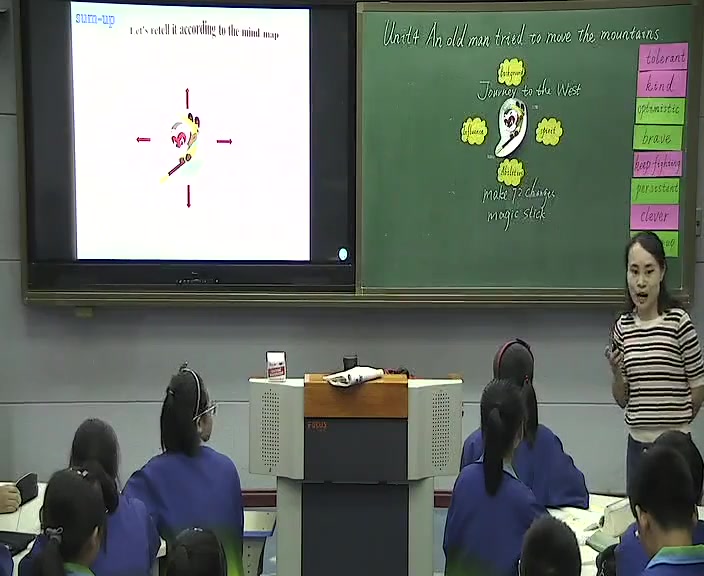 sum-up
Let's retell it according to the mind map
Unit4 An old man tried to move the mountains
background
Journey to the West
Influence
spirit
abilities
make 72 changes
magic stick
tolerant
kind
optimistic
brave
keep fighting
persistent
clever
FOCUS